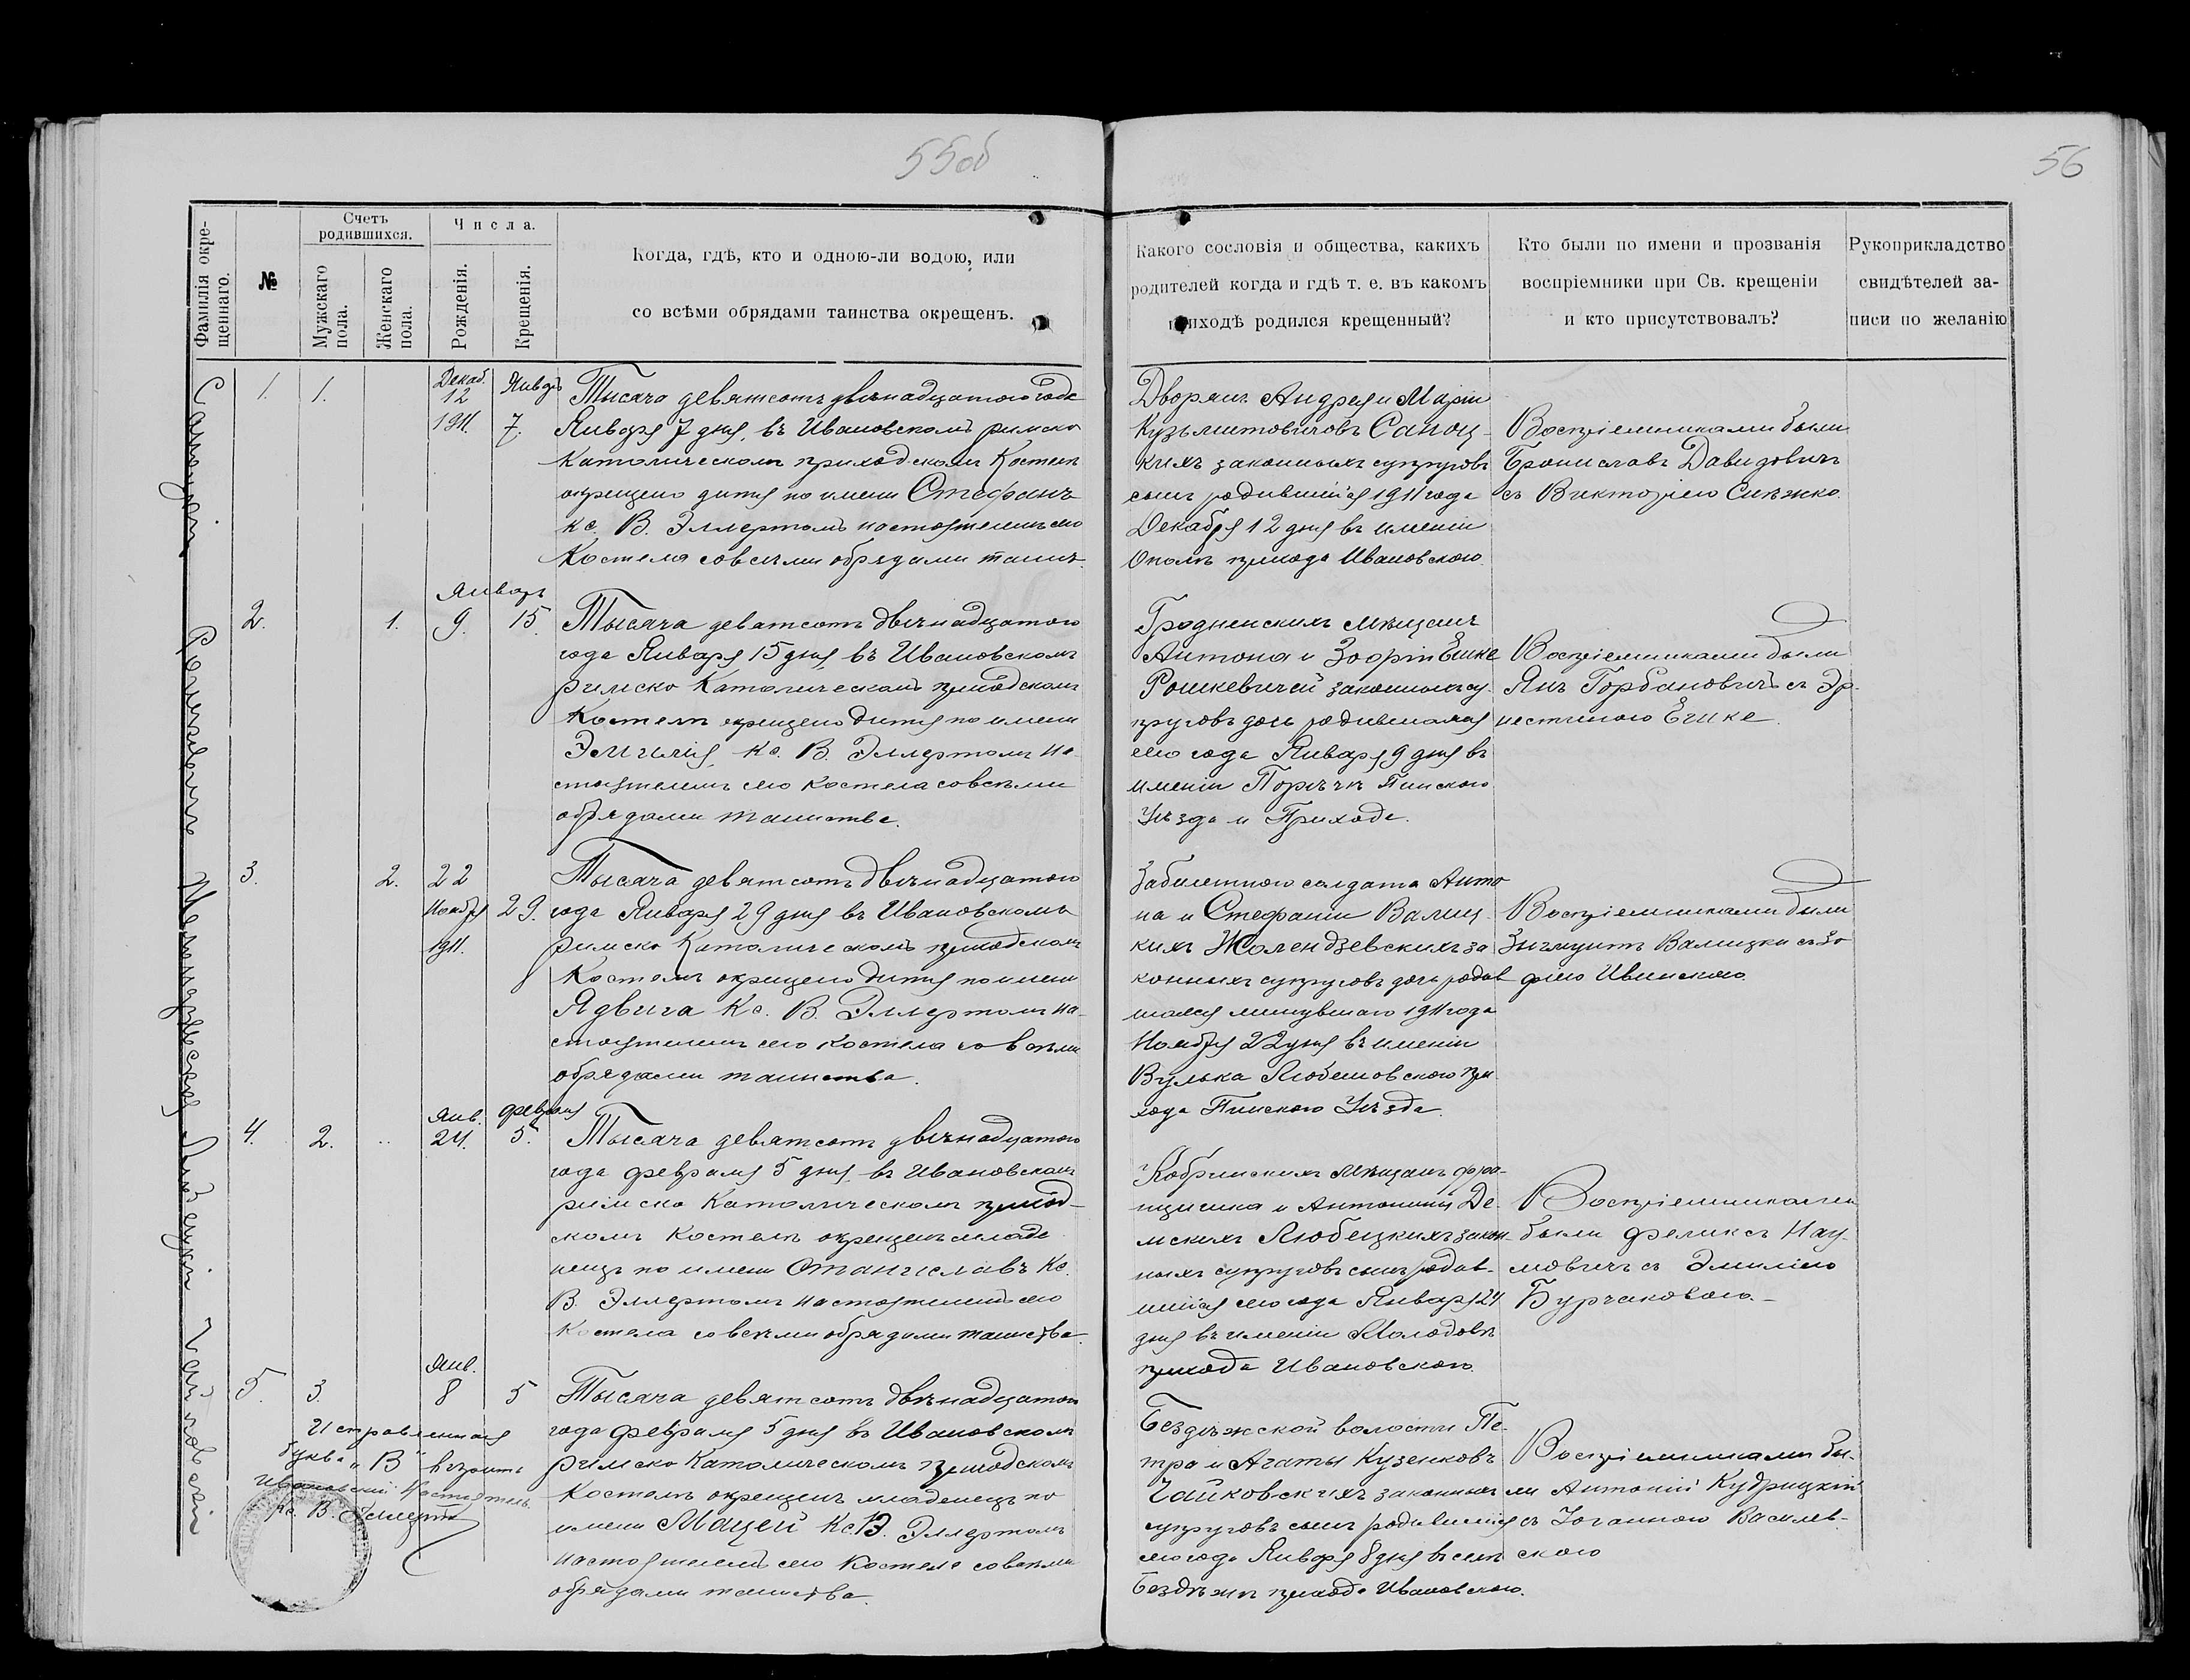 55об
56
Фамилія окре-
щеннаго.
№
Счетъ
родившихся.
Мужскаго
пола.
Женскаго
пола.
Числа.
Рожденія.
Крещенія.
Когда, гдѣ, кто и одною-ли водою, или
со всѣми обрядами таинства окрещенъ.
Какого сословія и общества, какихъ
родителей когда и гдѣ т. е. въ какомъ
приходѣ родился крещенный?
Кто были по имени и прозванія
воспріемники при Св. крещеніи
и кто присутствовалъ?
Рукоприкладство
свидѣтелей за-
писи по желанію
1. 1. Декаб. 12 1911. Январь 7.
Тысяча девятсотъ двѣнадцатого года
Января 7 дня, въ Ивановскомъ римско
Католическомъ приходскомъ Костелѣ
окрещено дитя по имени Стефанъ
кс. В. Эллертомъ настоятелемъ сего
Костела со всѣми обрядами таинъ.
Дворянъ Андрея и Маріи
Кузьмитовичовъ Саноц-
кихъ законныхъ супруговъ
сынъ родившійся 1911 года
Декабря 12 дня въ имѣніи
Ополѣ прихода Ивановского.
Воспріемниками были
Брониславъ Давидовичъ
съ Викторіею Снѣжко.
2. 1. Январь 9. 15.
Тысяча девятсотъ двѣнадцатого
года Января 15 дня, въ Ивановскомъ
римско Католическомъ приходскомъ
Костелѣ окрещено дитя по имени
Эмилія, Кс. В. Эллертомъ на-
стоятелемъ сего Костела со всѣми
обрядами таинства.
Гродненскихъ мѣщанъ
Антона и Зофіи Ешке
Рошкевичей законныхъ су-
пруговъ дочь родившаяся
сего года Января 9 дня въ
имѣніи Порѣчѣ Пинского
Уѣзда и Прихода.
Воспріемниками были
Янъ Горбановичъ съ Эр-
нестиною Ешке.
3. 2. 22 Ноября 1911. 29.
Тысяча девятсотъ двѣнадцатого
года Января 29 дня въ Ивановскомъ
римско Католическомъ приходскомъ
Костелѣ окрещено дитя по имени
Ядвига Кс. В. Эллертомъ на-
стоятелемъ сего Костела со всѣми
обрядами таинства.
Забилетного солдата Анто
на и Стефаніи Валиц-
кихъ Жолендзевскихъ за
конныхъ супруговъ дочь родив
шаяся минувшаго 1911 года
Ноября 22 дня въ имѣніи
Вулька Любешовского при
хода Пинского Уѣзда.
Воспріемниками были
Зыгмунтъ Валицки съ Зо
фіею Ивинскою.
4. 2. Янв. 24. Февраля 5.
Тысяча девятсотъ двѣнадцатого
года Февраля 5 дня, въ Ивановскомъ
римско Католическомъ приход-
скомъ Костелѣ окрещенъ младе
нецъ по имени Станиславъ Кс.
В. Эллертомъ настоятелемъ сего
Костела со всѣми обрядами таинства.
Кобринскихъ мѣщанъ Фра-
нцишка и Антонины Де-
мскихъ Любецкихъ закон
ныхъ супруговъ сынъ родив-
шійся сего года Января 24
дня въ имѣніи Молодовѣ
прихода Ивановского.
Воспріемниками
были Феликсъ Нау-
мовичъ съ Эмиліею
Бурчаковою.-
5. 3. Янв. 8 5
Тысяча девятсотъ двѣнадцатого
года Февраля 5 дня въ Ивановскомъ
римско Католическомъ приходскомъ
Костелѣ окрещенъ младенецъ по
имени Мацей Кс. В. Эллертомъ
настоятелемъ сего Костела со всѣми
обрядами таинства.
Бездѣжской волости Пе-
тра и Агаты Кузенковъ
Чайковскихъ законныхъ
супруговъ сынъ родившійся
сего года Января 8 дня въ селѣ
Бездѣжѣ прихода Ивановского.
Воспріемниками бы-
ли Антоній Кудрицкій
съ Іоганною Василев-
скою
Исправленная
буква „В" вѣрить
Ивановскій Настоятель
Кс. В. Эллертъ
Саноцкій
Рошкевичъ
Жолендзевская
Любецкій
Чайковскій